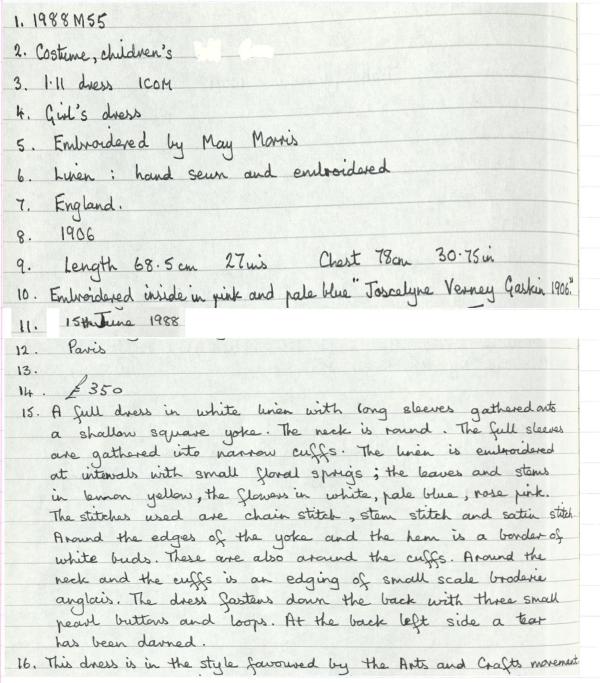 1. 1988 M55
2. Costume, children's
3. 1.11 dress ICOM
4. Girl's dress
5. Embroidered by May Morris
6. Linen : hand sewn and embroidered
7. England.
8. 1906
9. Length 68.5cm 27ins Chest 78cm 30.75in
10. Embroidered inside in pink and pale blue "Joscelyne Verney Gaskin 1906."
11. 15th June 1988
12. Paris
13.
14. £350
15. A full dress in white linen with long sleeves gathered onto
a shallow square yoke. The neck is round. The full sleeves
are gathered into narrow cuffs. The linen is embroidered
at intervals with small floral sprigs ; the leaves and stems
in lemon yellow, the flowers in white, pale blue, rose pink.
The stitches used are chain stitch, stem stitch and satin stitch.
Around the edges of the yoke and the hem is a border of
white buds. These are also around the cuffs. Around the
neck and the cuffs is an edging of small scale broderie
anglais. The dress fastens down the back with three small
pearl buttons and loops. At the back left side a tear
has been darned.
16. This dress is in the style favoured by the Arts and Crafts movement